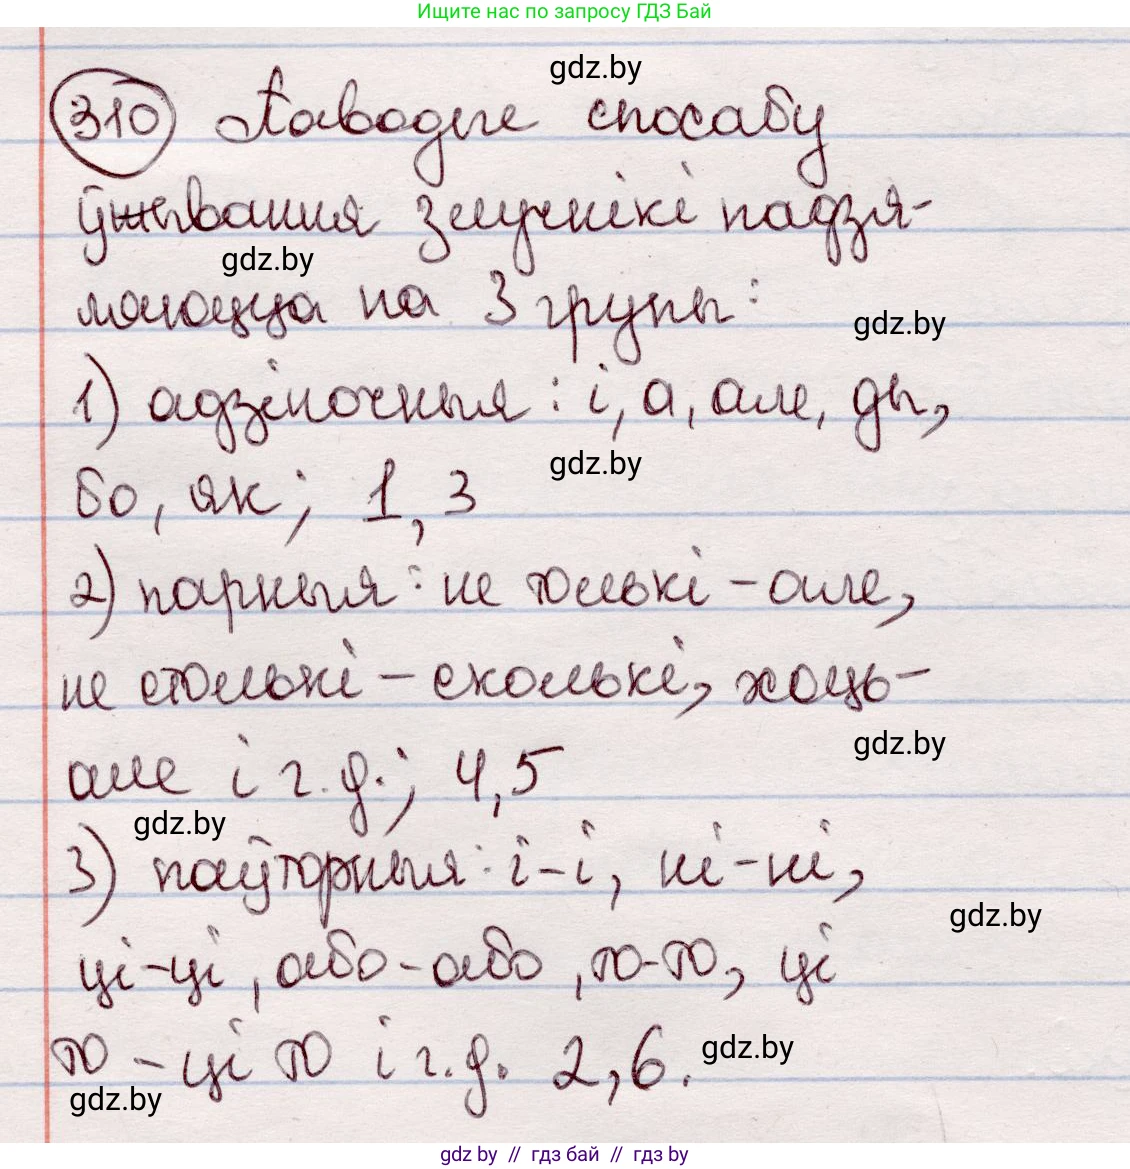 Ищите нас по запросу ГДЗ Бай
gdz.by
310 Паводле спосабу
ўжывання злучнікі падзя-
gdz.by
ляюцца на 3 групы:
gdz.by
1) адзіночныя: і, а, але, ды,
gdz.by
бо, як; 1, 3
2) парныя: не толькі - але,
не столькі - сколькі, хоць-
gdz.by
але і г.д.; 4,5
gdz.by
3) паўторныя: і-і, ні-ні,
gdz.by
ці-ці, або-або, то-то, ці
то - ці то і г.д. 2,6.
gdz.by
gdz.by
gdz by // гдз бай // гдз by